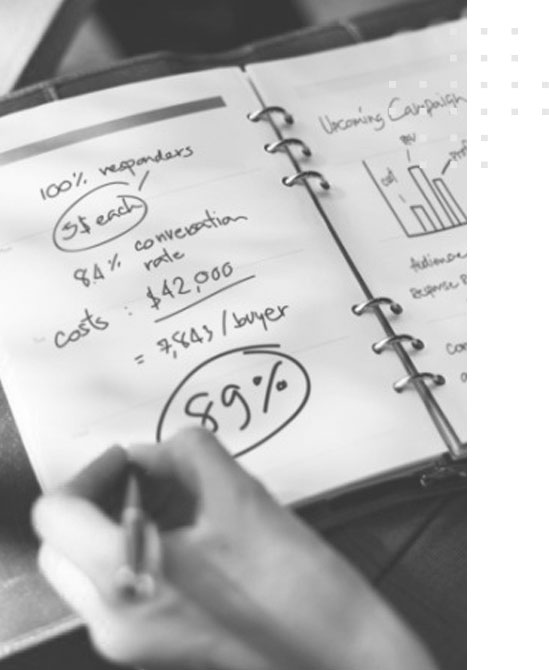 100% responders
5$ each
84% conversation
rate
costs : $42,000
= 7,843 / buyer
89%
Upcoming Campaign
cost
Audience
Response R